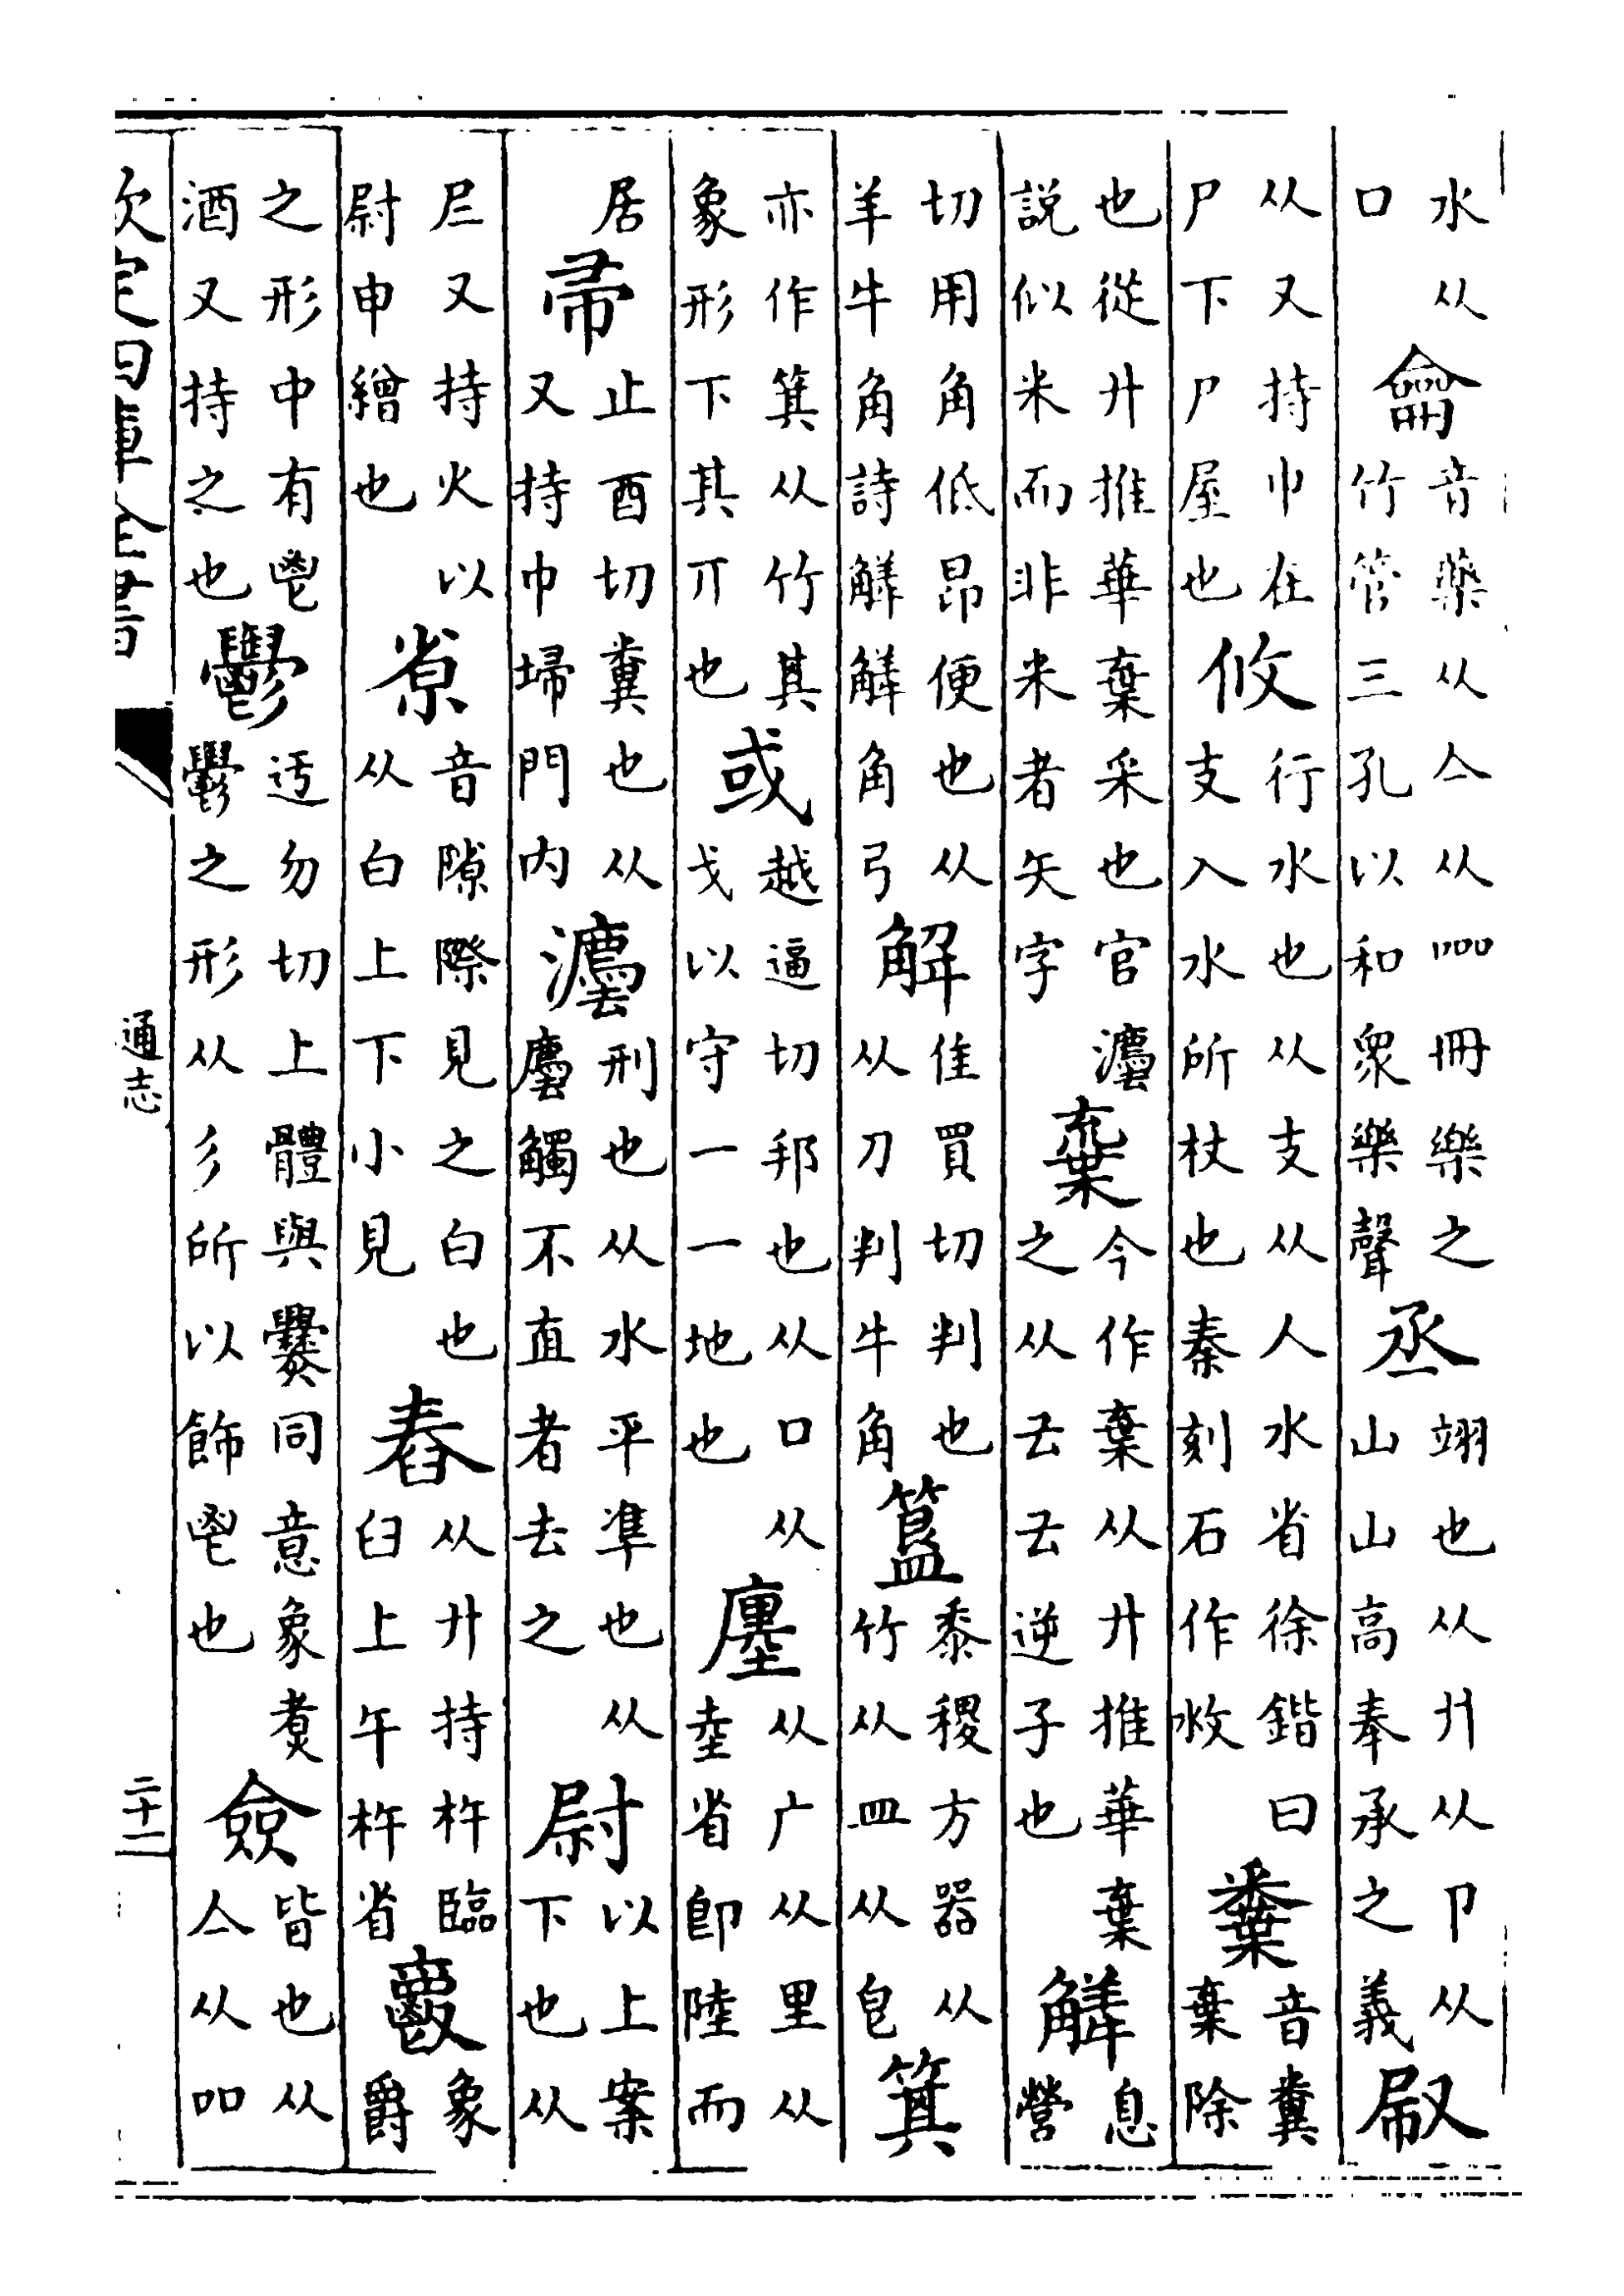 水从口龠音藥从亼从吅冊樂之竹管三孔以和衆樂聲丞翊也从廾从卩从山山高奉承之義㕞
从又持巾在尸下尸屋也攸行水也从攴从人水省徐鍇曰攴入水所杖也秦刻石作汥𥻔音糞棄除
也從廾推華棄采也官説似米而非米者矢字灋棄今作棄从廾推華棄之从𠫓𠫓逆子也觲息營
切用角低昂便也从羊牛角詩觲觲角弓解佳買切判也从刀判牛角簋黍稷方器从竹从皿从皀箕
亦作箕从竹其象形下其丌也或越逼切邦也从口从戈以守一一地也廛从广从里从坴省卽陸而
居帚止酉切糞也从又持巾埽門内灋刑也从水平準也从廌觸不直者去之尉以上案下也从
𡰥又持火以尉申繒也㡯音隙際見之白也从白上下小見舂从廾持杵臨臼上午杵省㲄象爵
之形中有鬯酒又持之也鬱迂勿切上體與爨同意象煑鬱之形从彡所以飾鬯也僉皆也从亼从吅
欽定四庫全書
通志
二十二